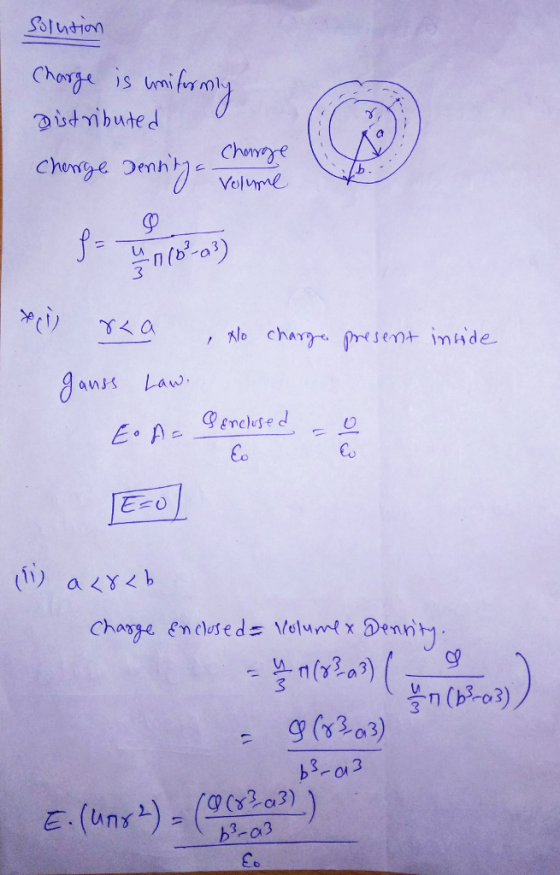 Solution
Charge is uniformly
Distributed
Charge Density = Charge / Volume
r
a
b
ρ = Q / (4/3 π(b³-a³))
*(i) r<a , No charge present inside
gauss Law.
E·A = Q enclosed / ε₀ = 0 / ε₀
E=0
(ii) a<r<b
Charge Enclosed = Volume x Density.
= 4/3 π(r³-a³) (Q / (4/3 π(b³-a³)))
= Q(r³-a³) / b³-a³
E·(4πr²) = (Q(r³-a³) / b³-a³) / ε₀